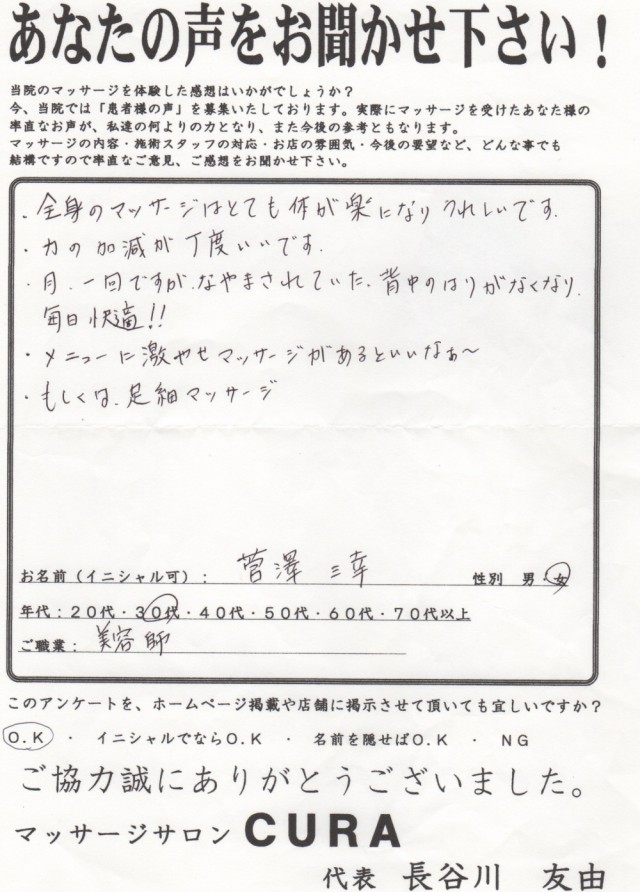 あなたの声をお聞かせ下さい！
当院のマッサージを体験した感想はいかがでしょうか？
今、当院では「患者様の声」を募集いたしております。実際にマッサージを受けたあなた様の
率直なお声が、私達の何よりの力となり、また今後の参考ともなります。
マッサージの内容・施術スタッフの対応・お店の雰囲気・今後の要望など、どんな事でも
結構ですので率直なご意見、ご感想をお聞かせ下さい。
・全身のマッサージはとても体が楽になりうれしいです。
・力の加減が丁度いいです。
・月、一回ですが、なやまされていた、背中のはりがなくなり、
毎日快適!!
・メニューに激やせマッサージがあるといいなぁ〜
・もしくは、足細マッサージ
お名前（イニシャル可）： 菅澤 三幸 性別 男・女
年代：２０代・３０代・４０代・５０代・６０代・７０代以上
ご職業： 美容師
このアンケートを、ホームページ掲載や店舗に掲示させて頂いても宜しいですか？
Ｏ.Ｋ ・ イニシャルでならＯ.Ｋ ・ 名前を隠せばＯ.Ｋ ・ ＮＧ
ご協力誠にありがとうございました。
マッサージサロン CURA
代表 長谷川 友由